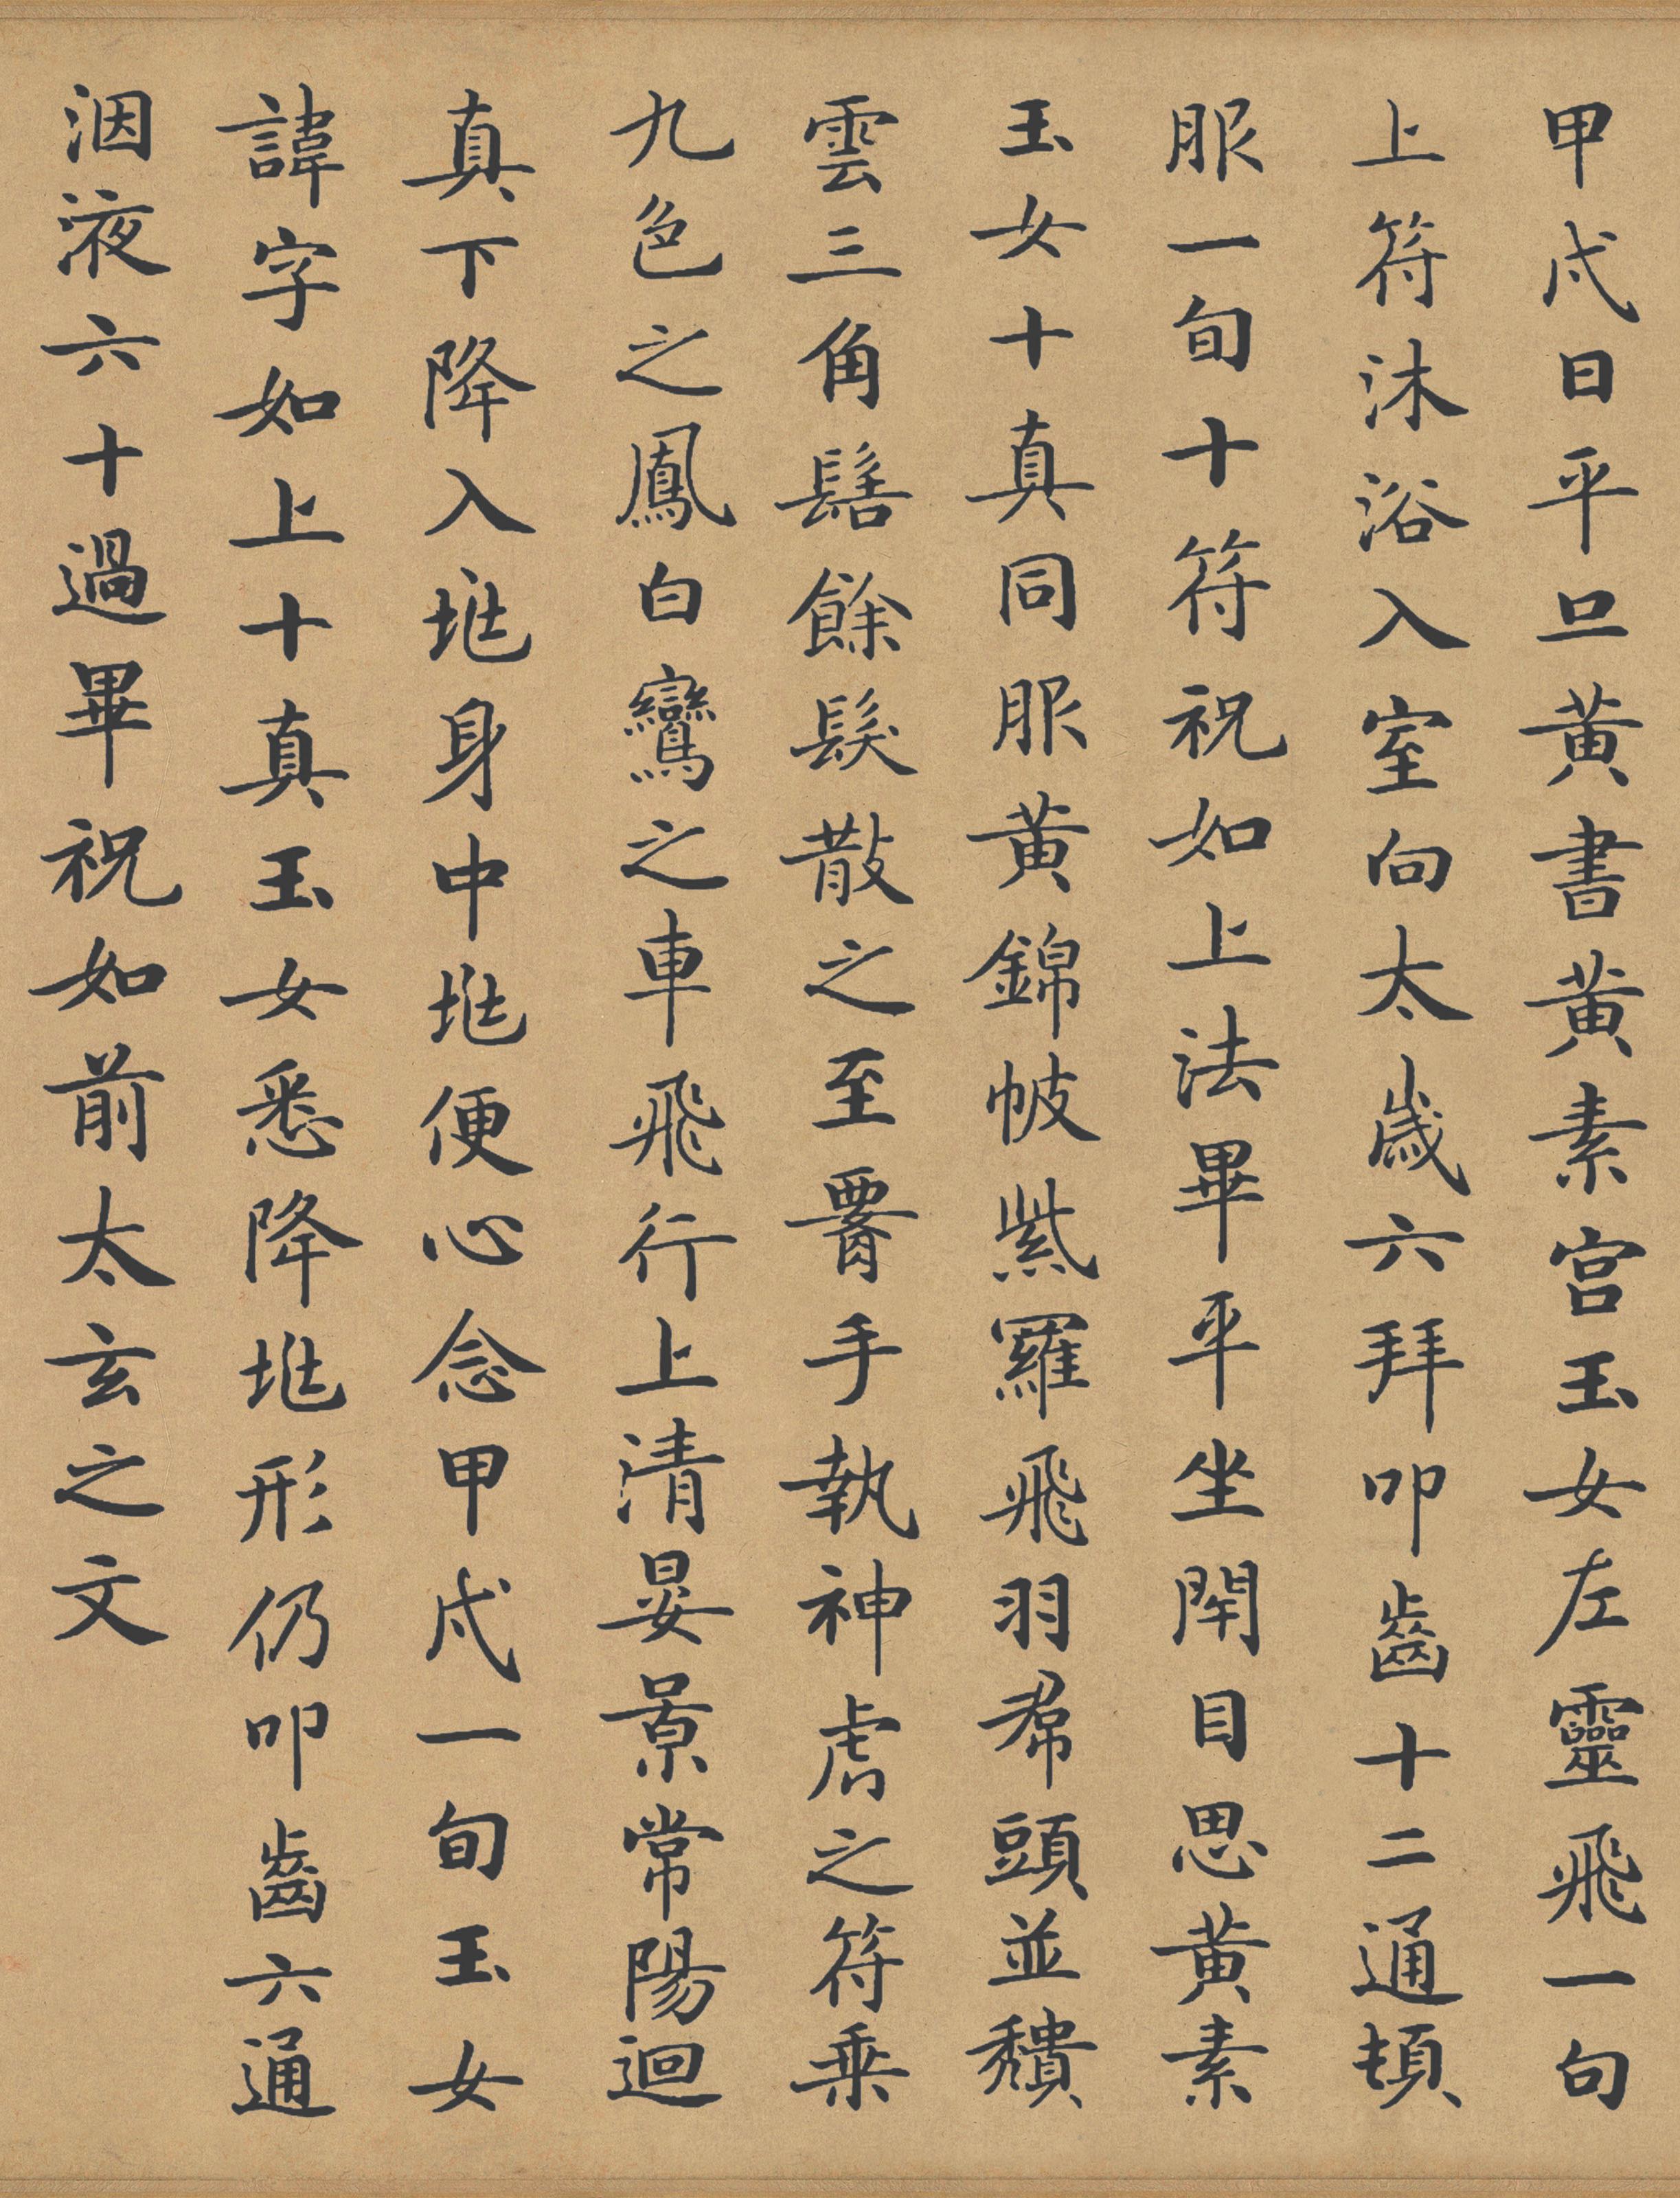 甲戌日平旦黃書黃素宮玉女左靈飛一句
上符沐浴入室向太歲六拜叩齒十二通頓
服一旬十符祝如上法畢平坐閉目思黃素
玉女十真同服黃錦帔紫羅飛羽帬頭並穨
雲三角髻餘髮散之至腰手執神虎之符乘
九色之鳳白鸞之車飛行上清晏景常陽迴
真下降入垗身中垗便心念甲戌一旬玉女
諱字如上十真玉女悉降垗形仍叩齒六通
洇液六十過畢祝如前太玄之文